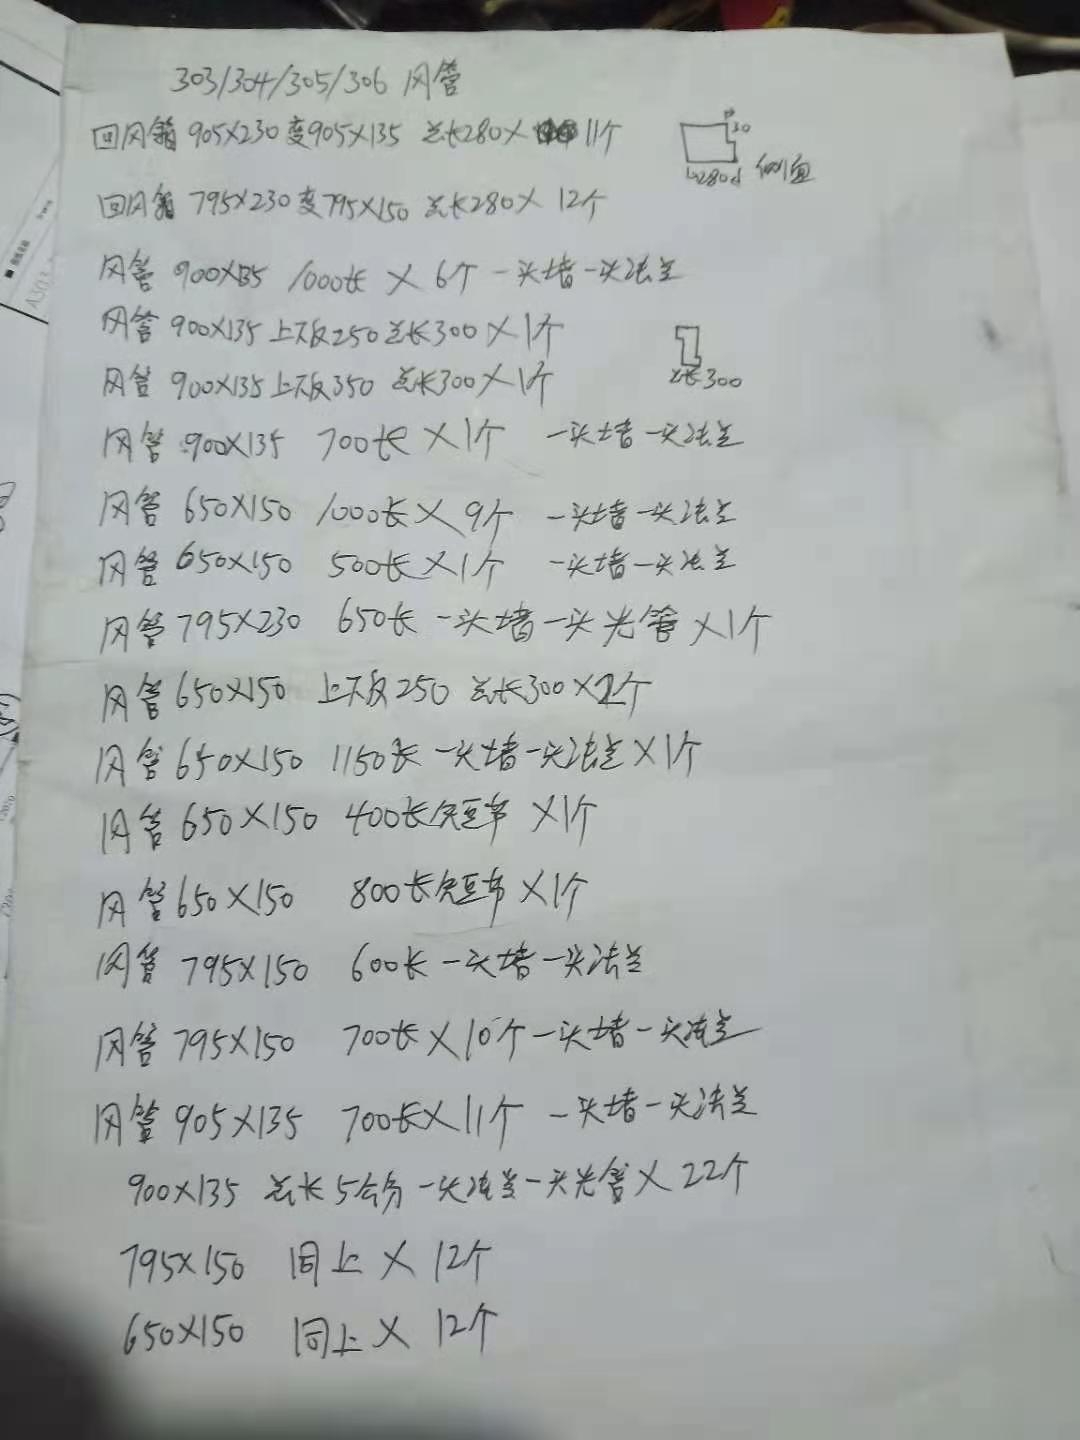 303/304/305/306 风管
回风箱 905X230 变905X135 总长280X 11个
30
280 侧面
回风箱 795X230 变795X150 总长280X 12个
风管 900X135 1000长 X 6个 一头堵一头法兰
风管 900X135 上下反250 总长300 X 1个
总长300
风管 900X135 上下反350 总长300 X 1个
风管 900X135 700长 X 1个 一头堵一头法兰
风管 650X150 1000长 X 9个 一头堵一头法兰
风管 650X150 500长 X 1个 一头堵一头法兰
风管 795X230 650长 一头堵一头光管 X1个
风管 650X150 上下反250 总长300 X 个
风管 650X150 1150长 一头堵一头法兰 X1个
风管 650X150 400长短节 X1个
风管 650X150 800长短节 X1个
风管 795X150 600长 一头堵一头法兰
风管 795X150 700长 X 10个 一头堵一头法兰
风管 905X135 700长 X 11个 一头堵一头法兰
900X135 总长5公分 一头法兰一头光管 X 22个
795X150 同上 X 12个
650X150 同上 X 12个
A303